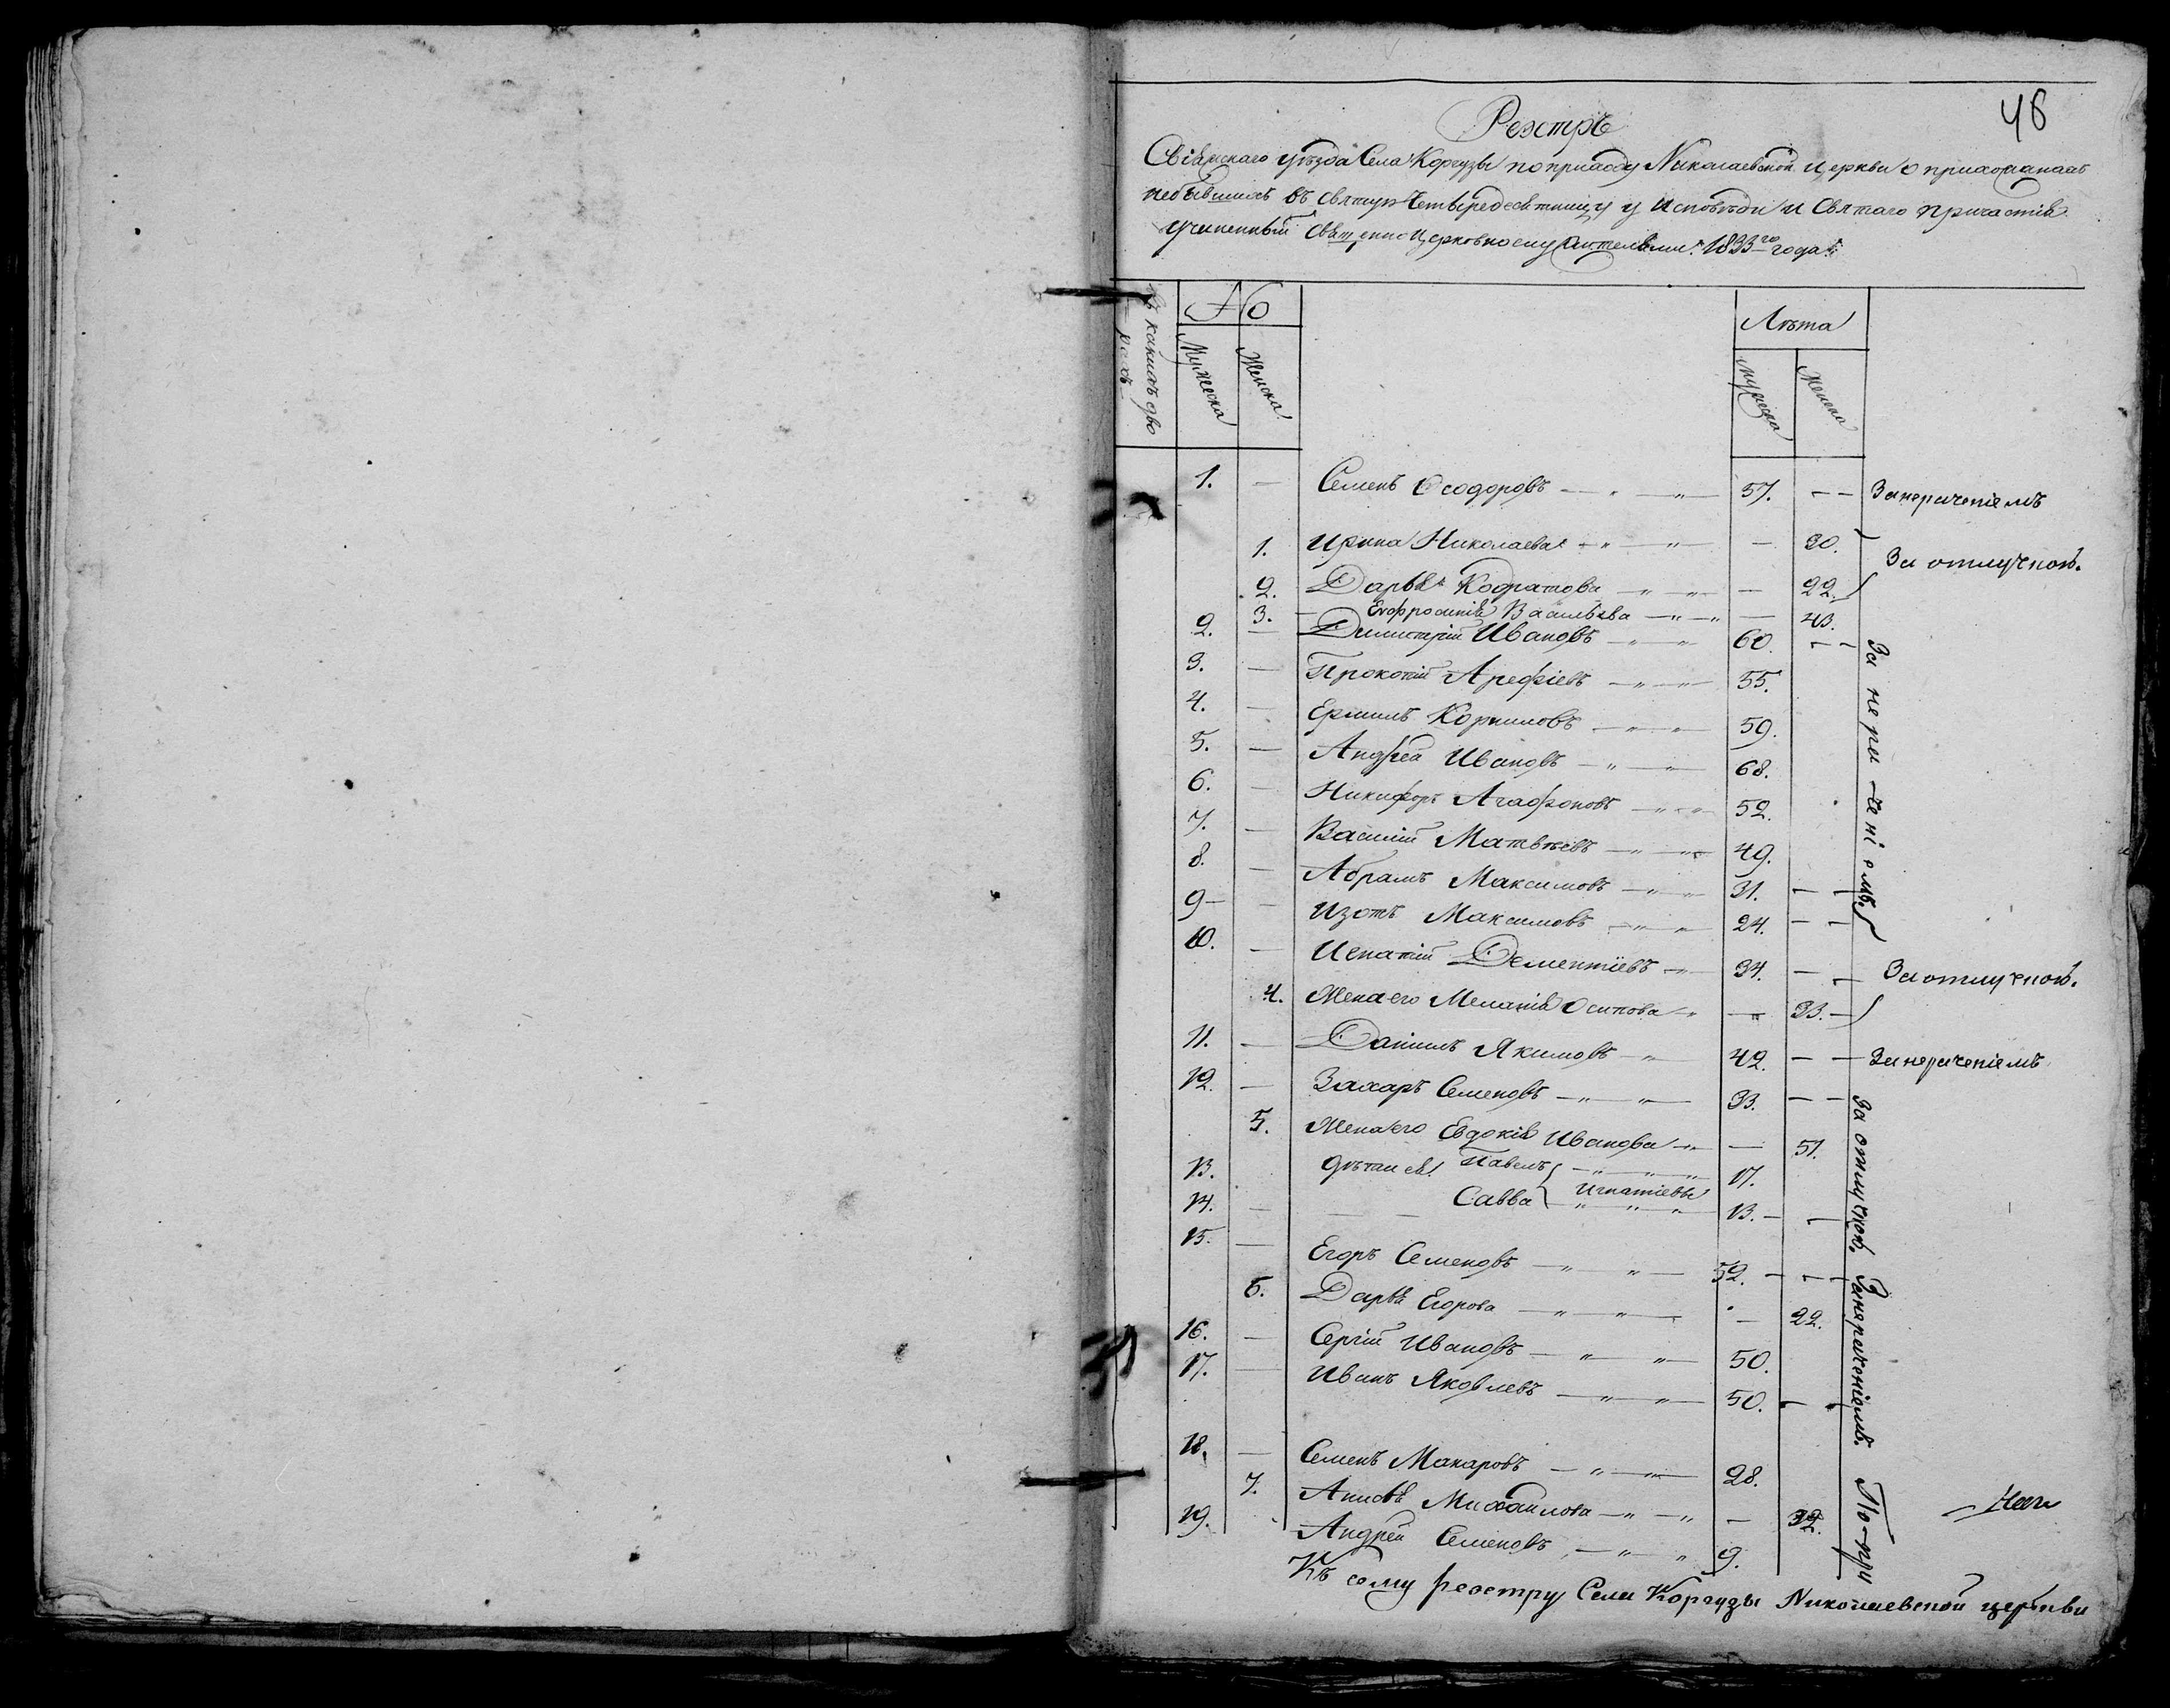 46
Реэстръ
Свіяжскаго уѣзда Села Коргузы по приходу Николаевской церкви о прихожанахъ
небывшихъ въ святую Четыредесятницу у Исповѣди и Святаго Причастія
учиненный Священно Церковнослужительми 1833го года
Въ какихъ дво
рахъ
№
Мужеска
Женска
Лѣта
мужеска
женска
1. — Семенъ Ѳеодоровъ — „ — „ — 57. — — За нераченіемъ
1. Ирина Николаева — „ — „ — — 30.
За отлучкою.
2. Дарья Кодратова — „ — „ — — 22.
3. — Евфросинія Васильева — „ — „ — 43.
2. — Димитрій Ивановъ — „ — 60. — —
3. — Прокопій Арефіевъ — „ — „ — 55.
4. — Ермилъ Корниловъ — „ — „ 59.
5. — Андрей Ивановъ — „ — „ — 68.
6. — Никифоръ Агафоновъ — „ — „ 52.
7. — Василій Матвѣевъ — „ — „ 49.
8. — Абрамъ Максимовъ — „ — „ 31. — —
За нераченіемъ.
9 — — Изотъ Максимовъ — „ — „ 24. — —
10. — Игнатій Дементіевъ — „ — 34. — — За отлучкою.
4. Жена его Меланія Осипова — „ — „ 33. —
11. — Даниилъ Якимовъ — „ 42. — — За нераченіемъ
12. — Захаръ Семеновъ — „ — „ — 33. — —
5. Жена его Евдокія Иванова — „ — 51.
13. дѣти ея Павелъ — „ — „ — „ 17.
Игнатіевы
14. — — — Савва — „ „ „ 13. — —
За отлучкою.
15. — Егоръ Семеновъ — „ — „ — 52. — — —
6. Дарья Егорова — „ — „ — — 22.
16. — Сергій Ивановъ — „ — „ — 50.
17. — Иванъ Яковлевъ — „ — „ — 50. — —
За нераченіемъ.
18. — Семенъ Макаровъ — „ — „ — 28.
7. Анисья Михайлова — „ — „ — 32.
19. Андрей Семеновъ — „ — „ 9.
По-при
Къ сему реэстру Села Коргузы Николаевской церкви